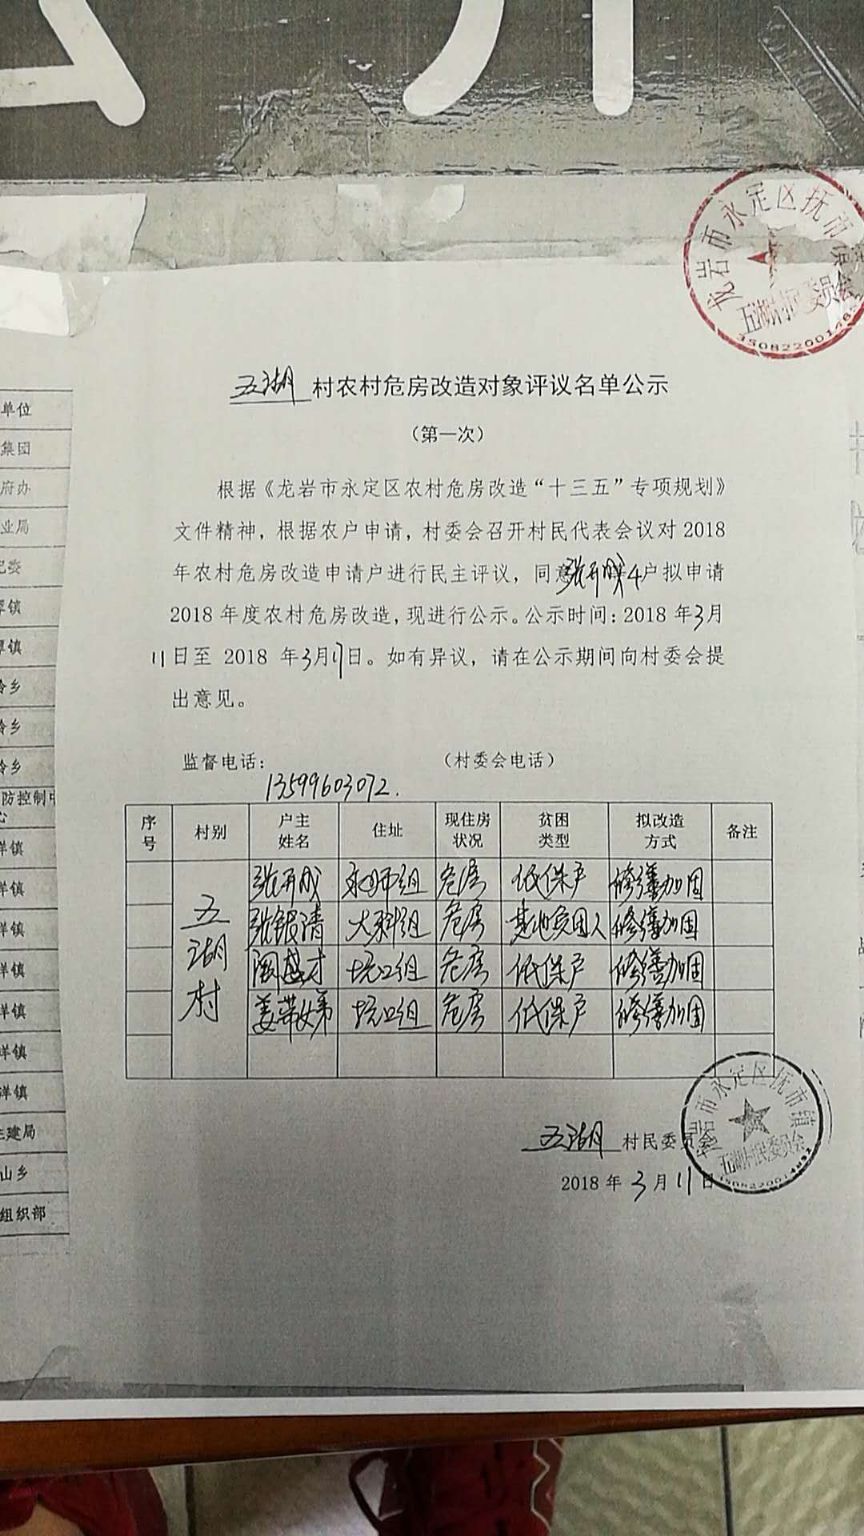 龙岩市永定区抚市镇
五湖村村民委员会
五湖村农村危房改造对象评议名单公示
（第一次）
根据《龙岩市永定区农村危房改造“十三五”专项规划》
文件精神，根据农户申请，村委会召开村民代表会议对 2018
年农村危房改造申请户进行民主评议，同意张开成等4户拟申请
2018 年度农村危房改造，现进行公示。公示时间：2018 年3月
11日至 2018 年3月17日。如有异议，请在公示期间向村委会提
出意见。
监督电话： （村委会电话）
13599603072.
序号 村别 户主姓名 住址 现住房状况 贫困类型 拟改造方式 备注
五湖村
张开成 组 危房 低保户 修缮加固
张银清 大科组 危房 贫困人 修缮加固
阙越才 坑口组 危房 低保户 修缮加固
姜带娣 坑口组 危房 低保户 修缮加固
五湖 村民委员会
2018 年 3 月 11 日
龙岩市永定区抚市镇
五湖村民委员会
单位
集团
府办
业局
纪委
镇
镇
乡
乡
乡
防控制中
心
洋镇
洋镇
洋镇
洋镇
洋镇
洋镇
洋镇
住建局
山乡
组织部